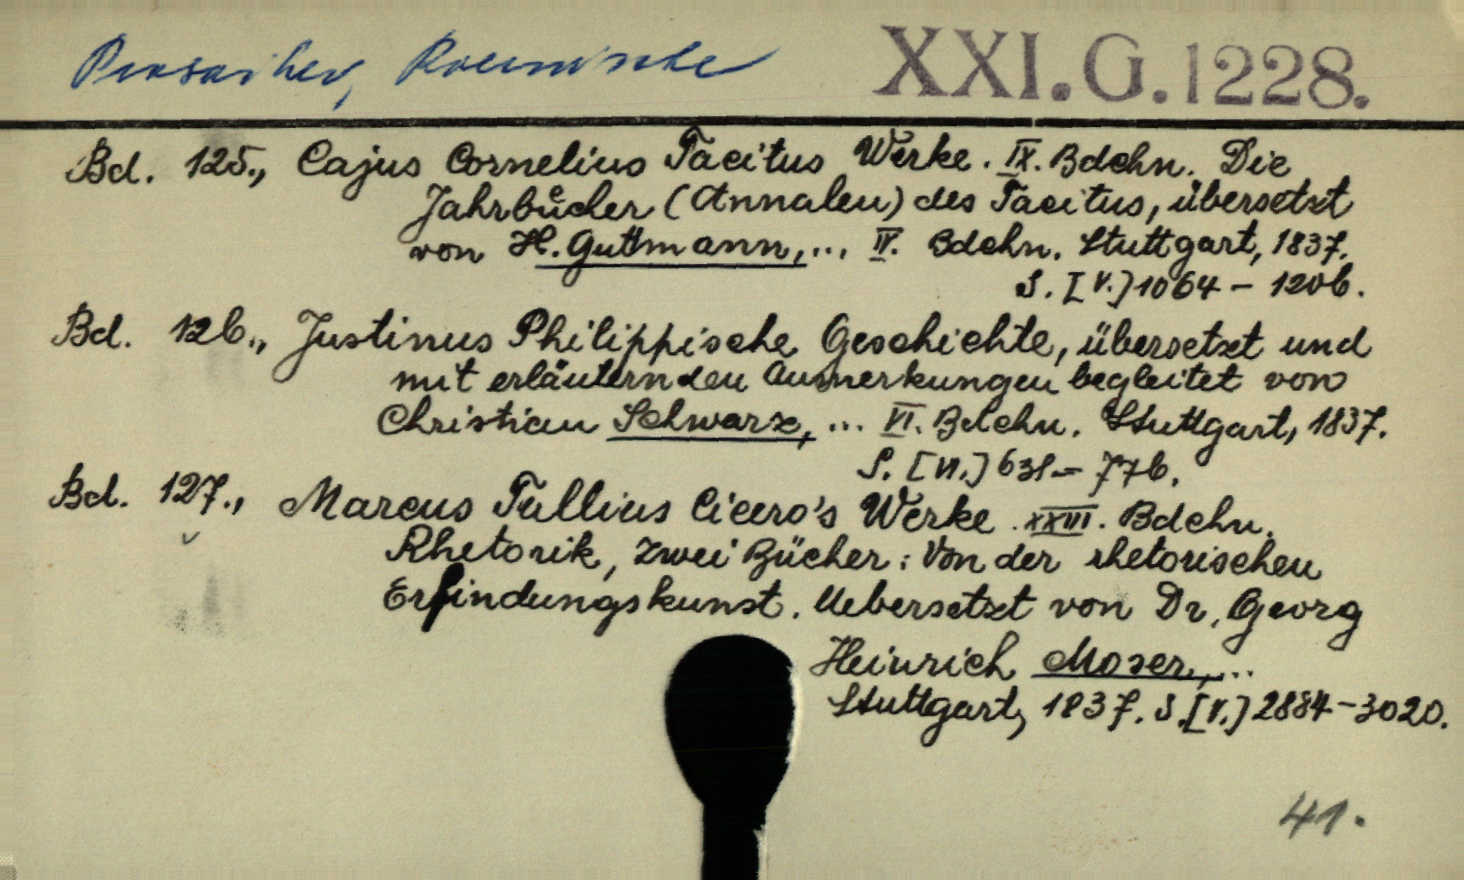 Prosaiker, Roemische XXI.G.1228.
Bd. 125., Cajus Cornelius Tacitus Werke. IX. Bdchn. Die
Jahrbücher (Annalen) des Tacitus, übersetzt
von H. Gutmann,... IV. Bdchn. Stuttgart, 1837.
S. [V.] 1064 - 1206.
Bd. 126., Justinus Philippische Geschichte, übersetzt und
mit erläuternden Anmerkungen begleitet von
Christian Schwarz, ... VI. Bdchn. Stuttgart, 1837.
S. [VI.] 631 - 776.
Bd. 127., Marcus Tullius Cicero's Werke. XXIII. Bdchn.
Rhetorik, zwei Bücher: Von der rhetorischen
Erfindungskunst. Uebersetzt von Dr. Georg
Heinrich Moser,...
Stuttgart, 1837. S.[V.] 2884-3020.
41.